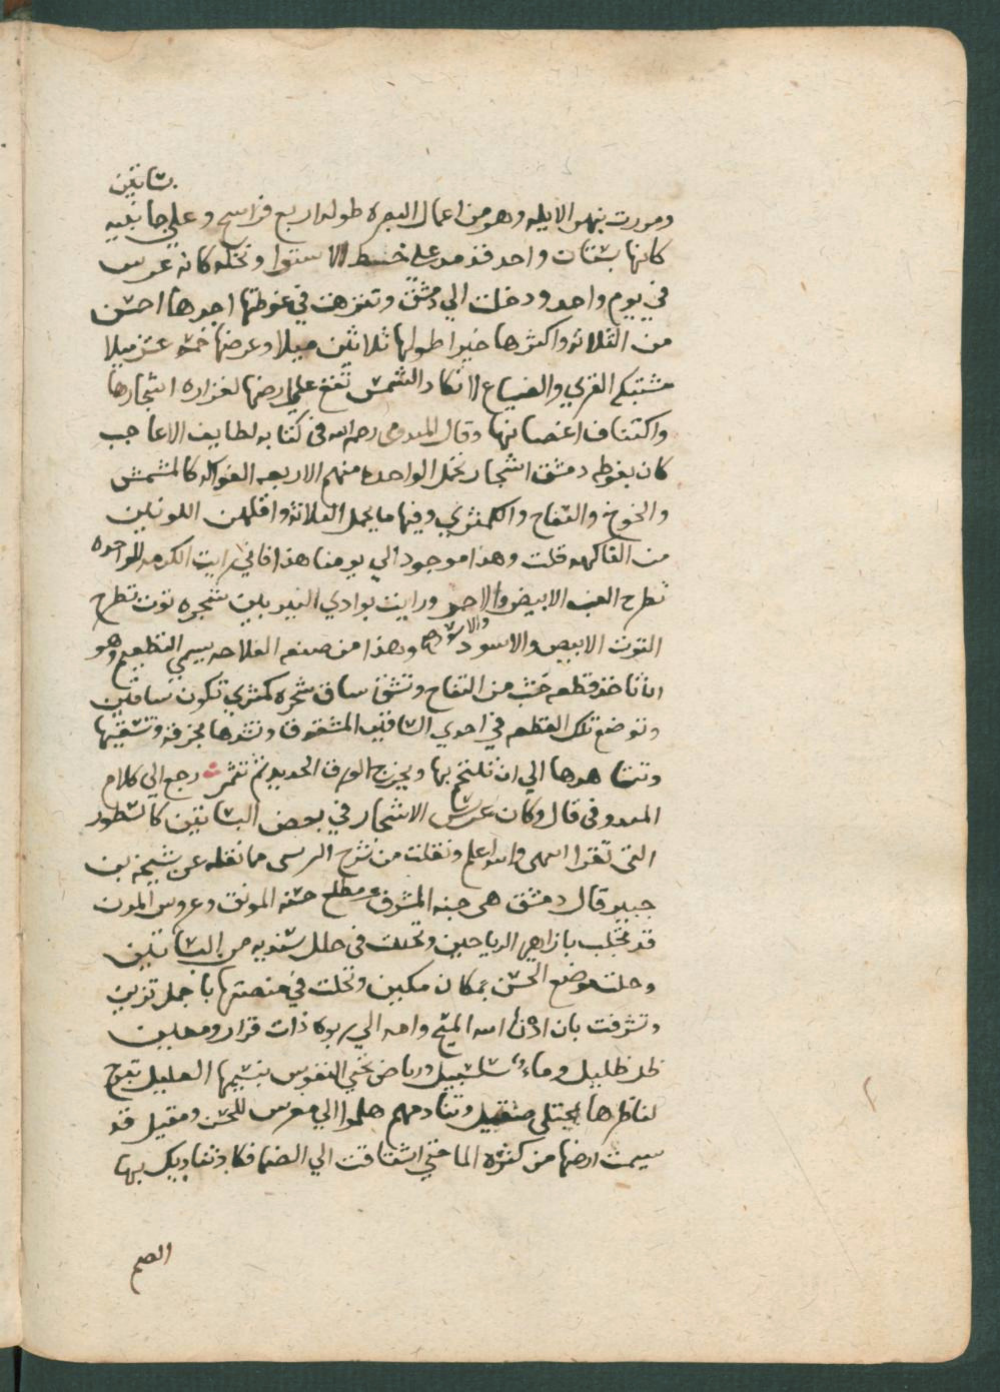 بساتين
ومررت بنهر الايله وهو من اعمال البصره طوله اربع فراسخ وعلي جانبيه
كانها بستان واحد قد مد علي خط الاستوا ونخله كانه غرس
في يوم واحد ودخلت الي دمشق وتنزهت في غوطتها اجدها احسن
من الثلاثه واكثرها خيرا طولها ثلاثين ميلا وعرضها خمسه عشر ميلا
مشتبكه القري والضياع لا تكاد الشمس تقع علي ارضها لغزاره اشجارها
واكتناف اغصانها وقال رحمه الله في كتابه لطايف الاعاجيب
كان بغوطه دمشق اشجار تحمل الواحده منهم الاربعه الفواكه كالمشمش
والخوخ والتفاح والكمثري وفيها ما يحمل الثلاثه واقلهن اللونين
من الفاكهه قلت وهذا موجود الي يومنا هذا فاني رايت الكرمه الواحده
تطرح العنب الابيض والاحمر ورايت بوادي النيربين شجره توت تطرح
التوت الابيض والاسود وهذا من صنعه الفلاحه يسمي التطعيم وهو
ان تاخذ قطعه خشب من التفاح وتشق ساق شجره كمثري تكون ساقين
وتوضع تلك القطعه في احدي الساقين المشقوق وتشدها بخرقه وتسقيها
وتتاهدها الي ان تلتحم بها ويخرج الورق الجديد ثم تثمر رجع الي كلام
قال وكان غرس الاشجار في بعض البساتين كالسطور
التي تقرا والله اعلم ونقلت من شرح مما نقله عن شيخه بن
جبير قال دمشق هي جنه المشرق ومطلع حسنه المونق وعروس المدن
قد تجلت بازاهير الرياحين وتجلت في حلل سندسيه من البساتين
وحلت موضع الحسن بمكان مكين وتجلت في منصتها باجمل تزيين
وتشرفت بان اوي الله المسيح وامه الي ربوة ذات قرار ومعين
ظل ظليل وماء سلسبيل ورياض تحيي النفوس بنسيمها العليل تتبرج
لناظرها بمجتلي صقيل وتناديهم هلموا الي معرس للحسن ومقيل قد
سيمت ارضها من كثره الما حتي اشتاقت الي الضما فكاد تناديك بها
الصم